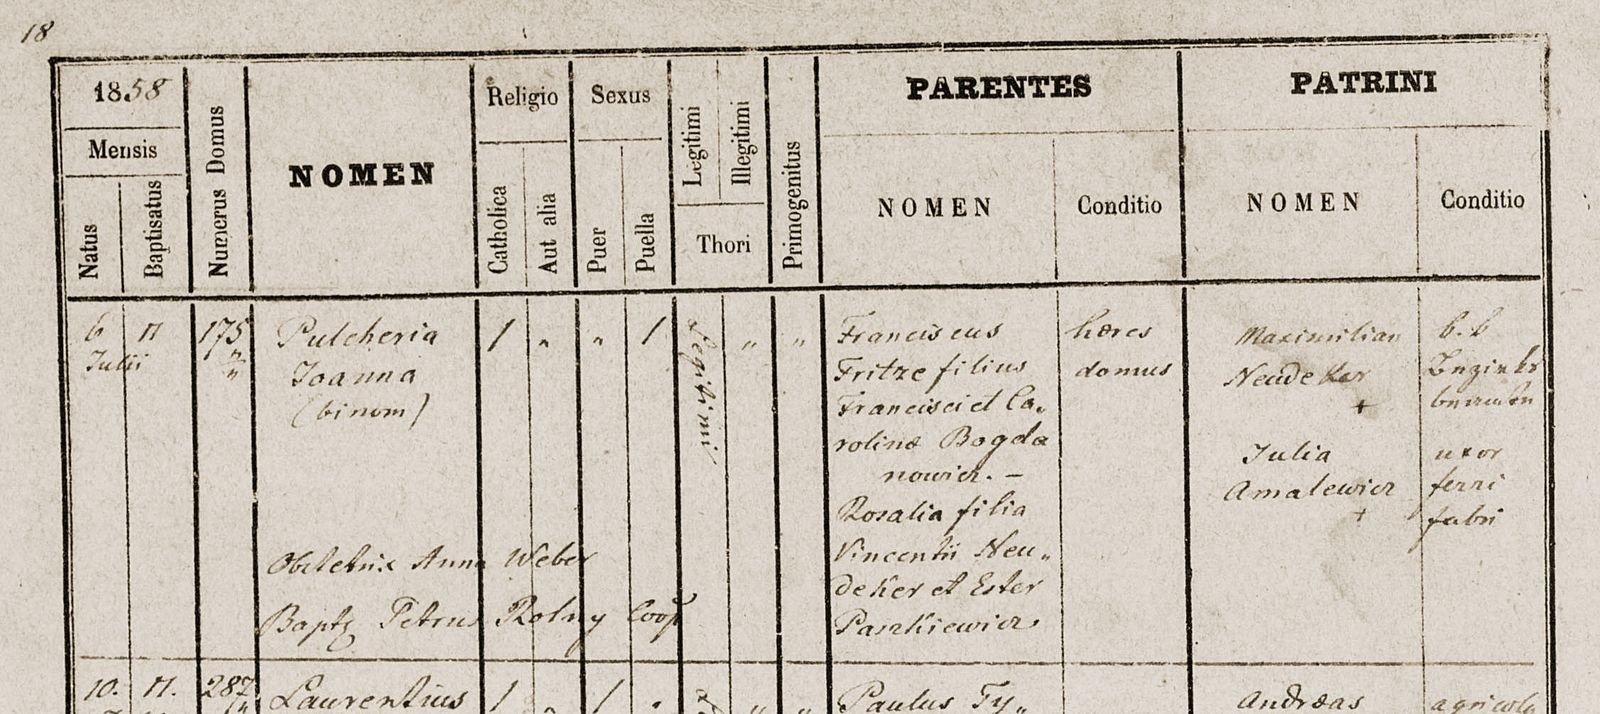 18
1858
Mensis
Natus
Baptisatus
Numerus Domus
NOMEN
Religio
Catholica
Aut alia
Sexus
Puer
Puella
Legitimi
Illegitimi
Thori
Primogenitus
PARENTES
NOMEN
Conditio
PATRINI
NOMEN
Conditio
6 11 175 Pulcheria 1 " " 1 Legitimi " " Franciscus hæres Maximilian b. b
Julii " Joanna Fritze filius domus Neudeker
" (binom) Francisci et Ca„ +
rolinæ Bogda Julia uxor
nowicz. — Amalewicz ferri
Rosalia filia + fabri
Obstetrix Anna Weber Vincentii Neu„
deker et Ester
Baptz Petrus Rolny Coop Paszkiewicz
10. 11. 287 Laurentius 1 " 1 " " " Paulus Ty„ Andreas agricola